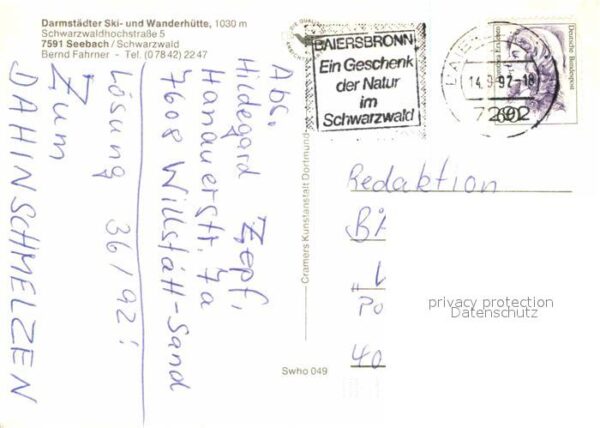 Darmstädter Ski- und Wanderhütte, 1030 m
Schwarzwaldhochstraße 5
7591 Seebach/Schwarzwald
Bernd Fahrner - Tel. (07842) 2247
BAIERSBRONN
Ein Geschenk
der Natur
im
Schwarzwald
14.9.92-18
7292
Deutsche Bundespost
Abs.
Hildegard Zepf,
Hanauerstr. 7a
7608 Willstätt-Sand
Lösung 36/92:
Zum
DAHINSCHMELZEN
Cramers Kunstanstalt Dortmund
Swho 049
Redaktion
Po
40
privacy protection
Datenschutz